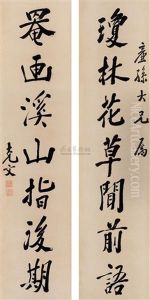 瓊林花草聞前語
孫大兄属
罨画溪山指後期
克文